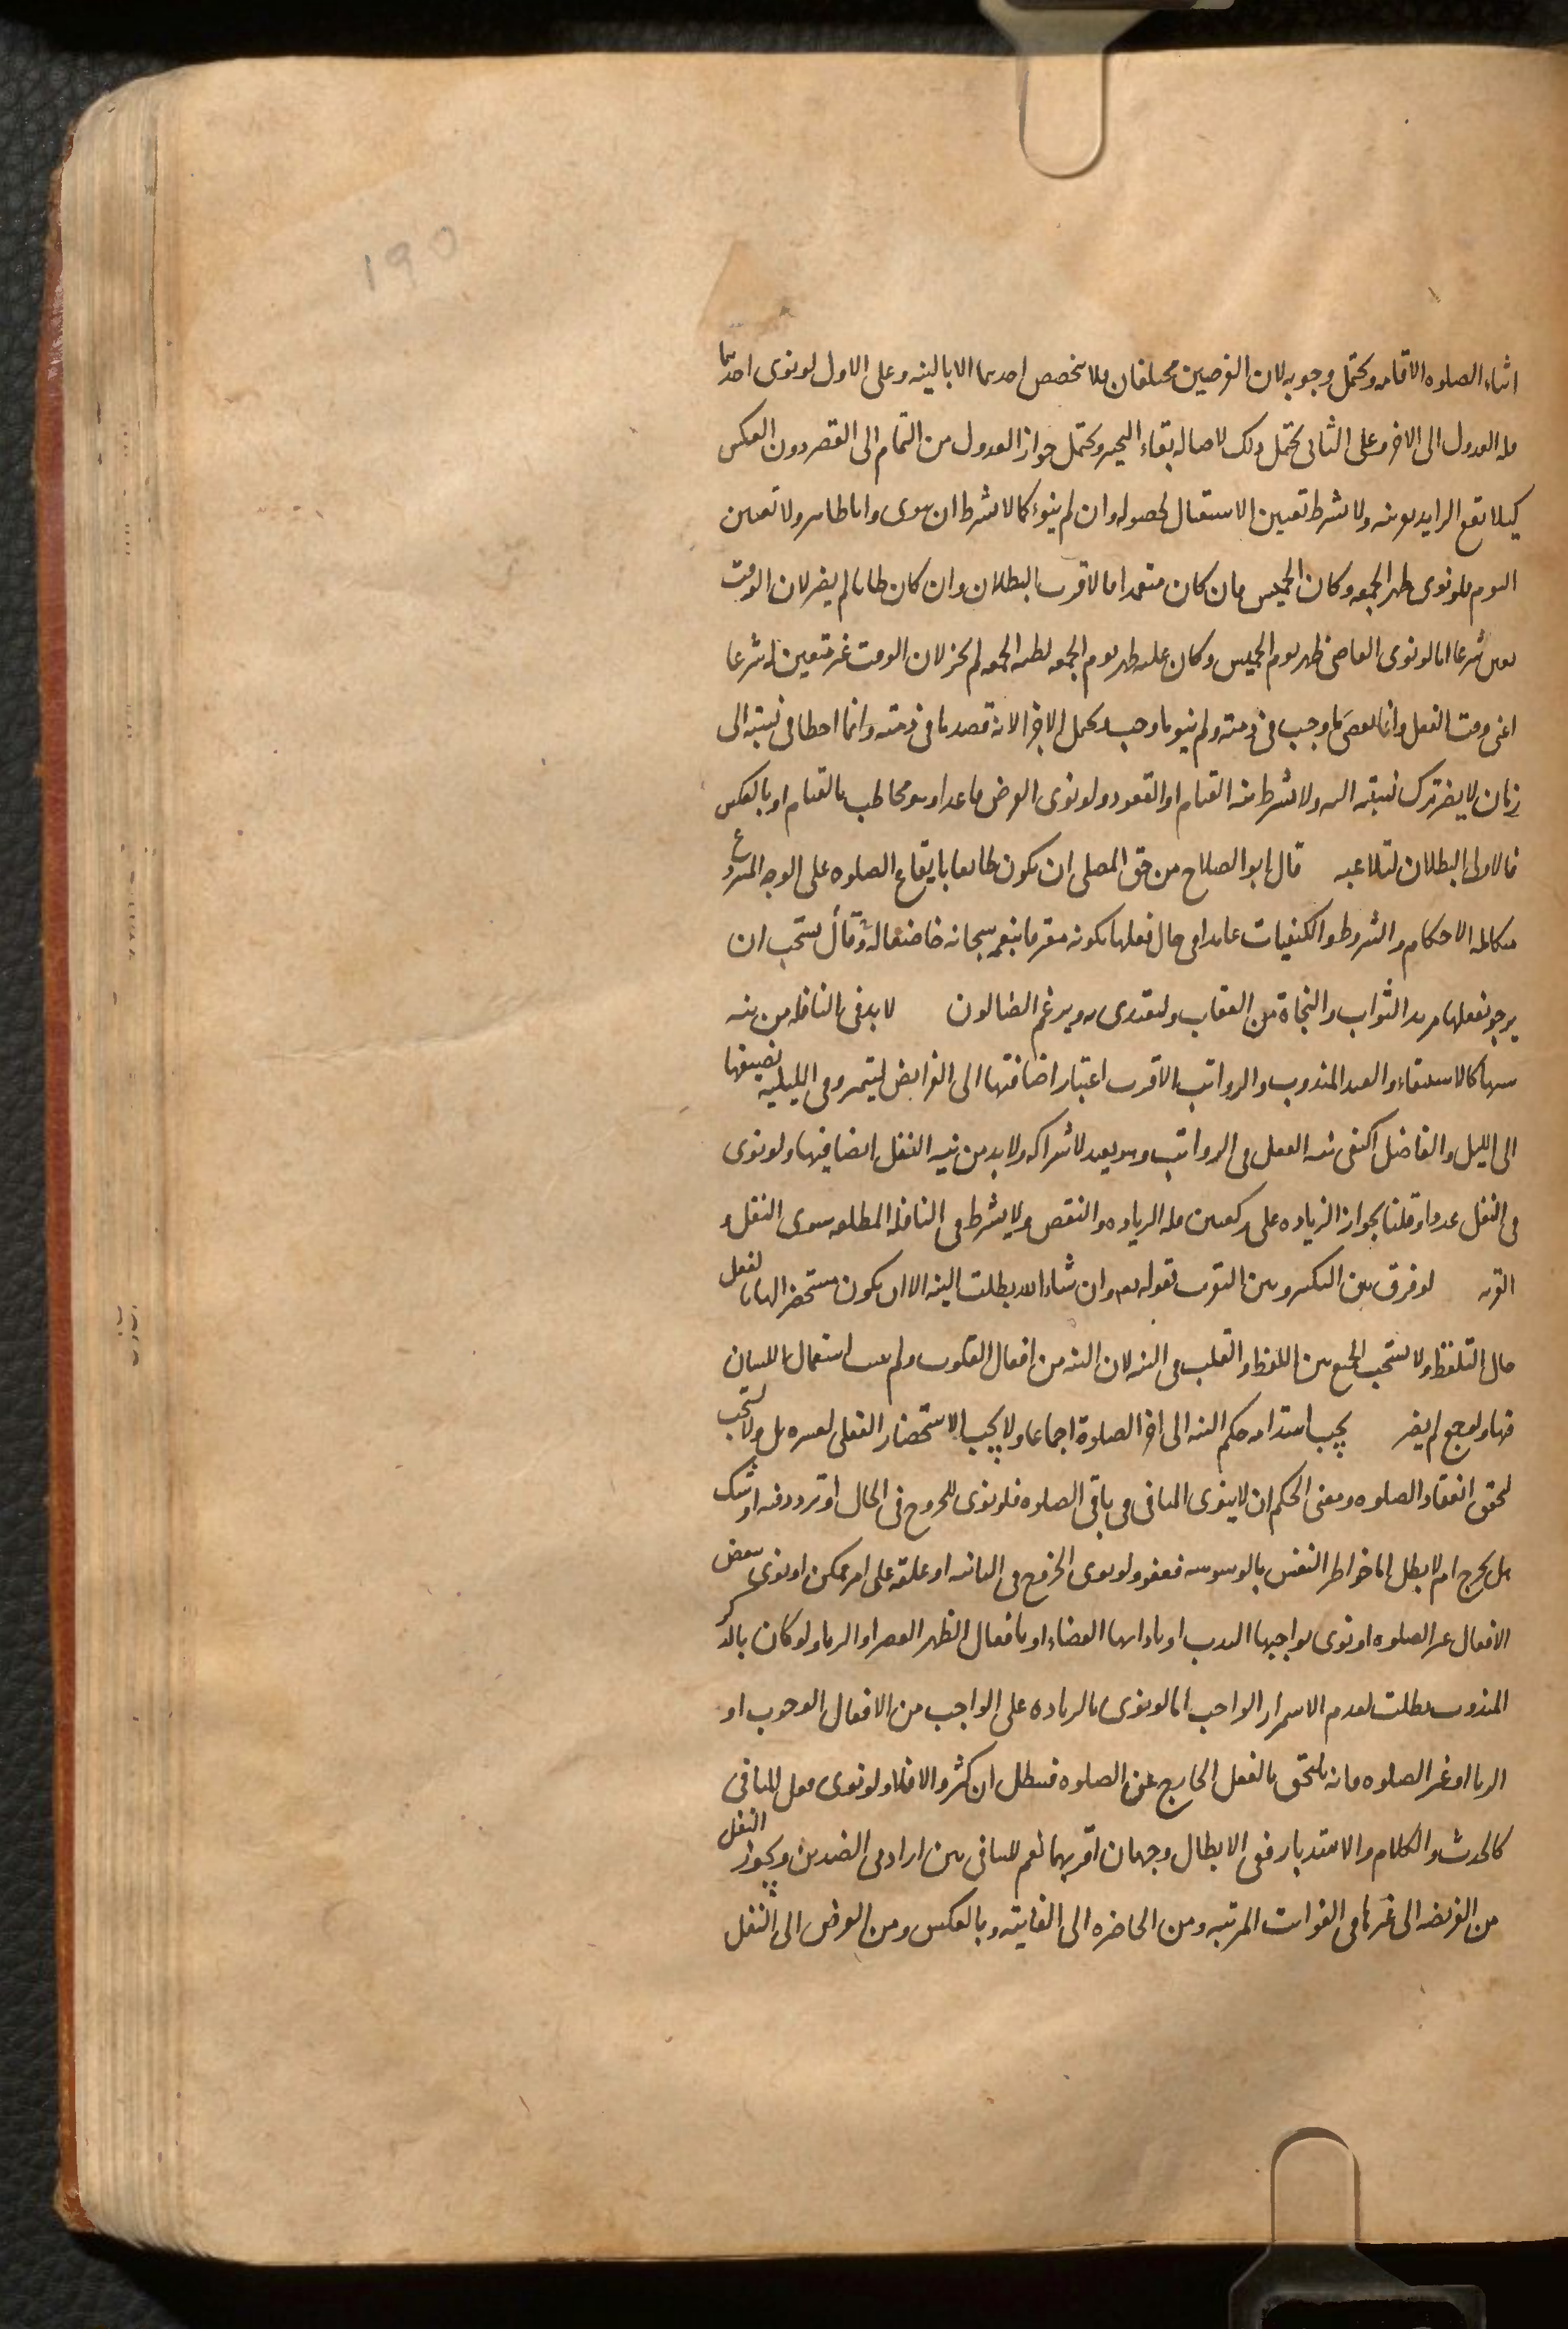 ١٩٥
اثناء الصلوه الاقامه ويحتمل وجوبه لان الفرضين مختلفان فلا يتخصص احدهما الا بالنيه وعلى الاول لو نوى احدهما
فله العدول الى الاخر وعلى الثانى يحتمل ذلك لاصاله بقاء التخيير ويحتمل جواز العدول من التمام الى القصر دون العكس
كيلا يقع الزايد بغير نيه ولا يشترط تعيين الاستقبال لحصوله وان لم ينوه كما لا يشترط ان ينوى وانا طاهر ولا تعيين
اليوم فلو نوى ظهر الجمعه وكان الخميس فان كان متعمدا فالاقرب البطلان وان كان ظانا لم يضر لان الوقت
تعين شرعا اما لو نوى القاضى ظهر يوم الخميس وكان عليه ظهر يوم الجمعه لظنه الجمعه لم يجز لان الوقت غير متعين له شرعا
اعنى وقت الفعل وانما يقضى ما وجب فى ذمته ولم ينو ما وجب ويحتمل الاجزا لانه قصد ما فى ذمته وانما اخطا فى نسبته الى
زمان لا يضر ترك نسبته اليه ولا يشترط نيه القيام او القعود ولو نوى الفرض قاعدا وهو مخاطب بالقيام او بالعكس
فالاولى البطلان لتلاعبه قال ابو الصلاح من حق المصلى ان يكون طايعا بايقاع الصلوه على الوجه المشروع
متكاملة الاحكام والشروط والكيفيات عامدا فى حال فعلها بكونه معترفا بنعمه سبحانه خاضعا له وقال يستحب ان
يرجو بفعلها مزيد الثواب والنجاة من العقاب وليقتدى به ويرغم الضالون لا بد فى النافله من نيه
سببها كالاستسقاء والعيد المندوب والرواتب الاقرب اعتبار اضافتها الى الفرايض ليتميز وفى الليليه تضيفها
الى الليل والفاضل اكتفى بنيه الفعل فى الرواتب وهو بعيد لاشتراكه ولا بد من نيه النفل ايضا فيها ولو نوى
فى النفل عددا وقلنا بجواز الزياده على ركعتين فله الزياده والنقص ولا يشترط فى النافله المطلقه سوى النفل و
القربه لو فرق بين التكبير وبين التقرب بقوله نعم وان شاء الله بطلت النيه الا ان يكون مستحضرا لها بالفعل
حال التلفظ ولا يستحب الجمع بين اللفظ والقلب فى النيه لان النيه من افعال القلوب ولم يجب استعمال اللسان
فيها ولو جمع لم يضر يجب استدامه حكم النيه الى اخر الصلوة اجماعا ولا يجب الاستحضار الفعلى لعسره بل ولا يستحب
لتحقق انعقاد الصلوه ومعنى الحكم ان لا ينوى المنافى فى باقى الصلوه فلو نوى الخروج فى الحال او تردد فيه او شك
هل يخرج ام لا بطل اما خواطر النفس بالوسوسه فعفو ولو نوى الخروج فى الثانيه او علقه على امر ممكن او نوى ببعض
الافعال غير الصلوه او نوى بواجبها الندب او باداءها القضاء او بافعال الظهر العصر او الريا ولو كان بالذكر
المندوب بطلت لعدم الاستمرار الواجب اما لو نوى بالزياده على الواجب من الافعال الوجوب او
الريا او غير الصلوه فانه يلتحق بالفعل الخارج عن الصلوه فتبطل ان كثر والا فلا ولو نوى فعل المنافى
كالحدث والكلام والاستدبار ففى الابطال وجهان اقربهما نعم للتنافى بين ارادتى الضدين ويجوز النقل
من الفريضه الى غيرها فى الفوايت المرتبه ومن الحاضره الى الفايته وبالعكس ومن الفرض الى النفل